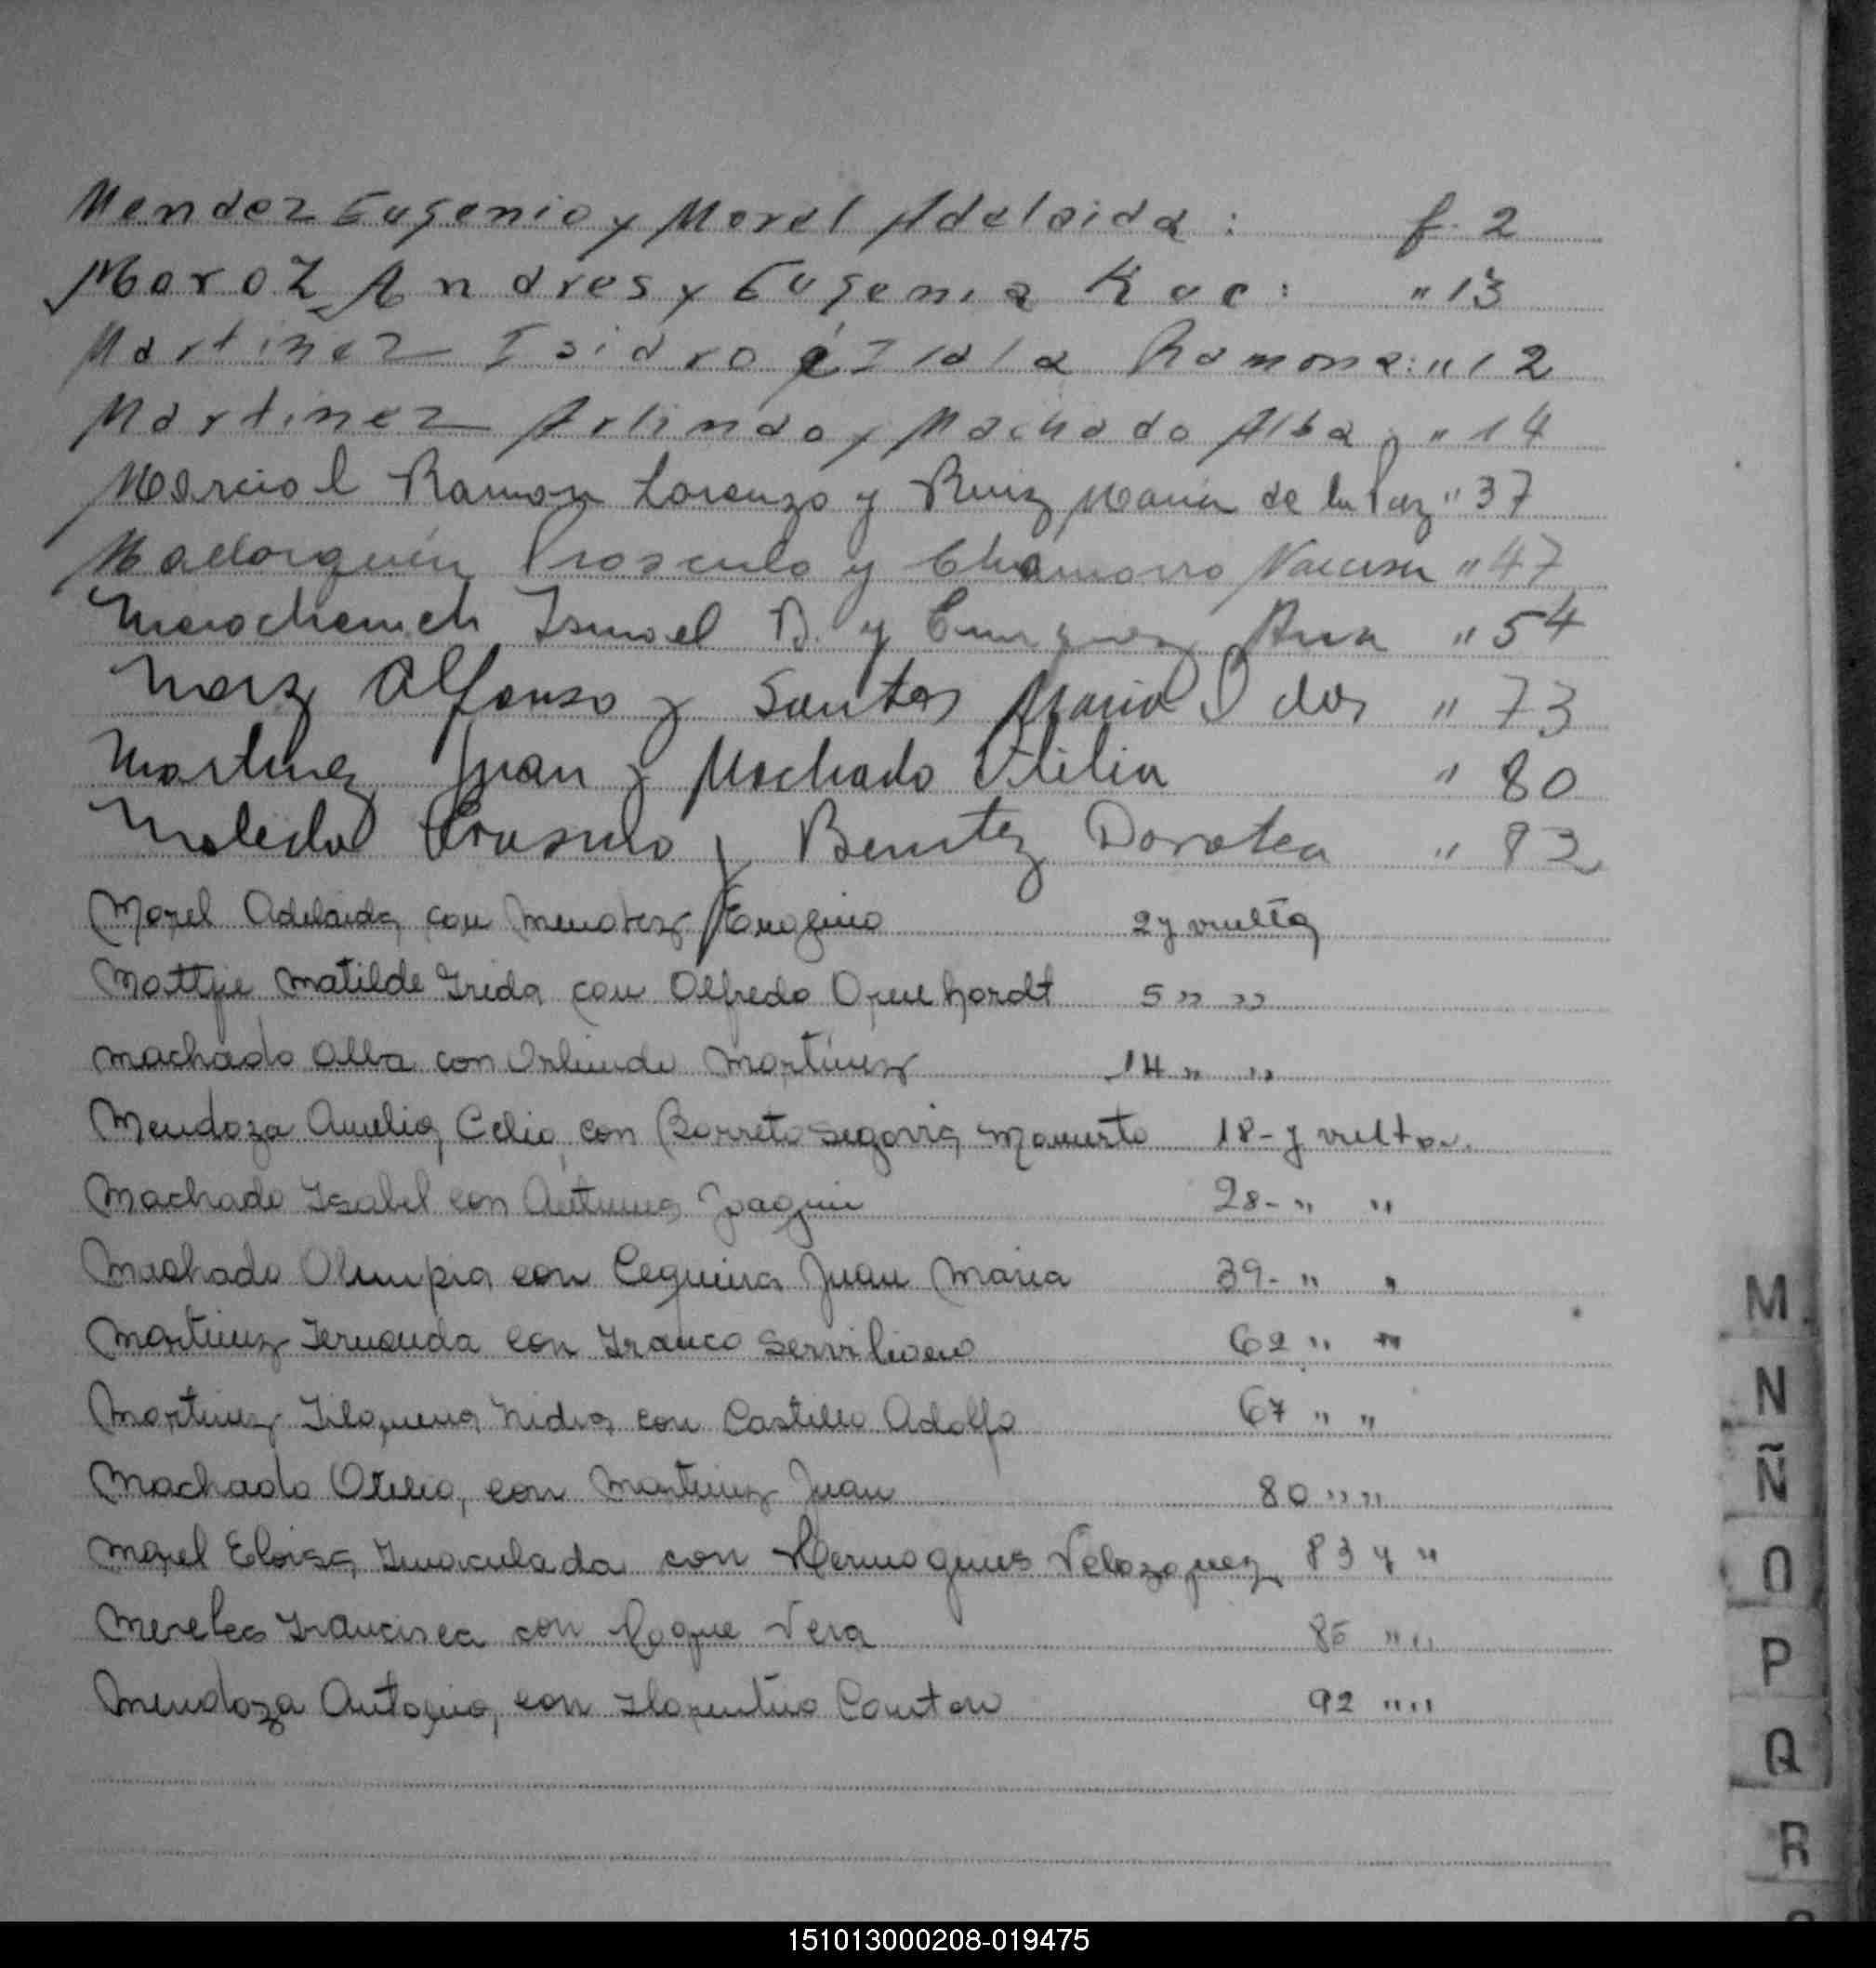 Mendez Eugenio y Morel Adelaida : f. 2
Moroz Andres y Eugenia Kuc : " 13
Martinez Isidro é Irala Ramona : " 12
Martinez Arlindo y Machado Alba " 14
Marcial Ramon Lorenzo y Ruiz Maria de la Paz " 37
Mallorquín Prosculo y Chamorro Narcisa " 47
Ismael B. y Ana " 54
Alfonso y Santos Maria dos " 73
Martinez Juan y Machado Otilia " 80
Erasmo y Benitez Dorotea " 82
Morel Adelaida con Mendez Eugenio 2 y vuelta
Matilde Frida con Alfredo 5 " "
Machado Alba con Orlindo Martínez 14 " "
Mendoza Amelia, Celia, con Barreto Segovia, Mamerto 18 - y vuelta.
Machado Isabel con Antunes Joaquin 28 - " "
Machado Olimpia con Cequeira Juan Maria 39 - " "
Martinez Fernanda con Franco Serviliano 62 " "
Martinez Filomena Nidia con Castillo Adolfo 67 " "
Machado Otilia, con Martinez Juan 80 " "
Morel Eloisa Inmaculada con Hermogenes Velazquez 83 y "
Mereles Francisca con Roque Vera 85 " "
Mendoza Antonia, con Florentino Canton 92 " "
M
N
Ñ
O
P
Q
R
151013000208-019475